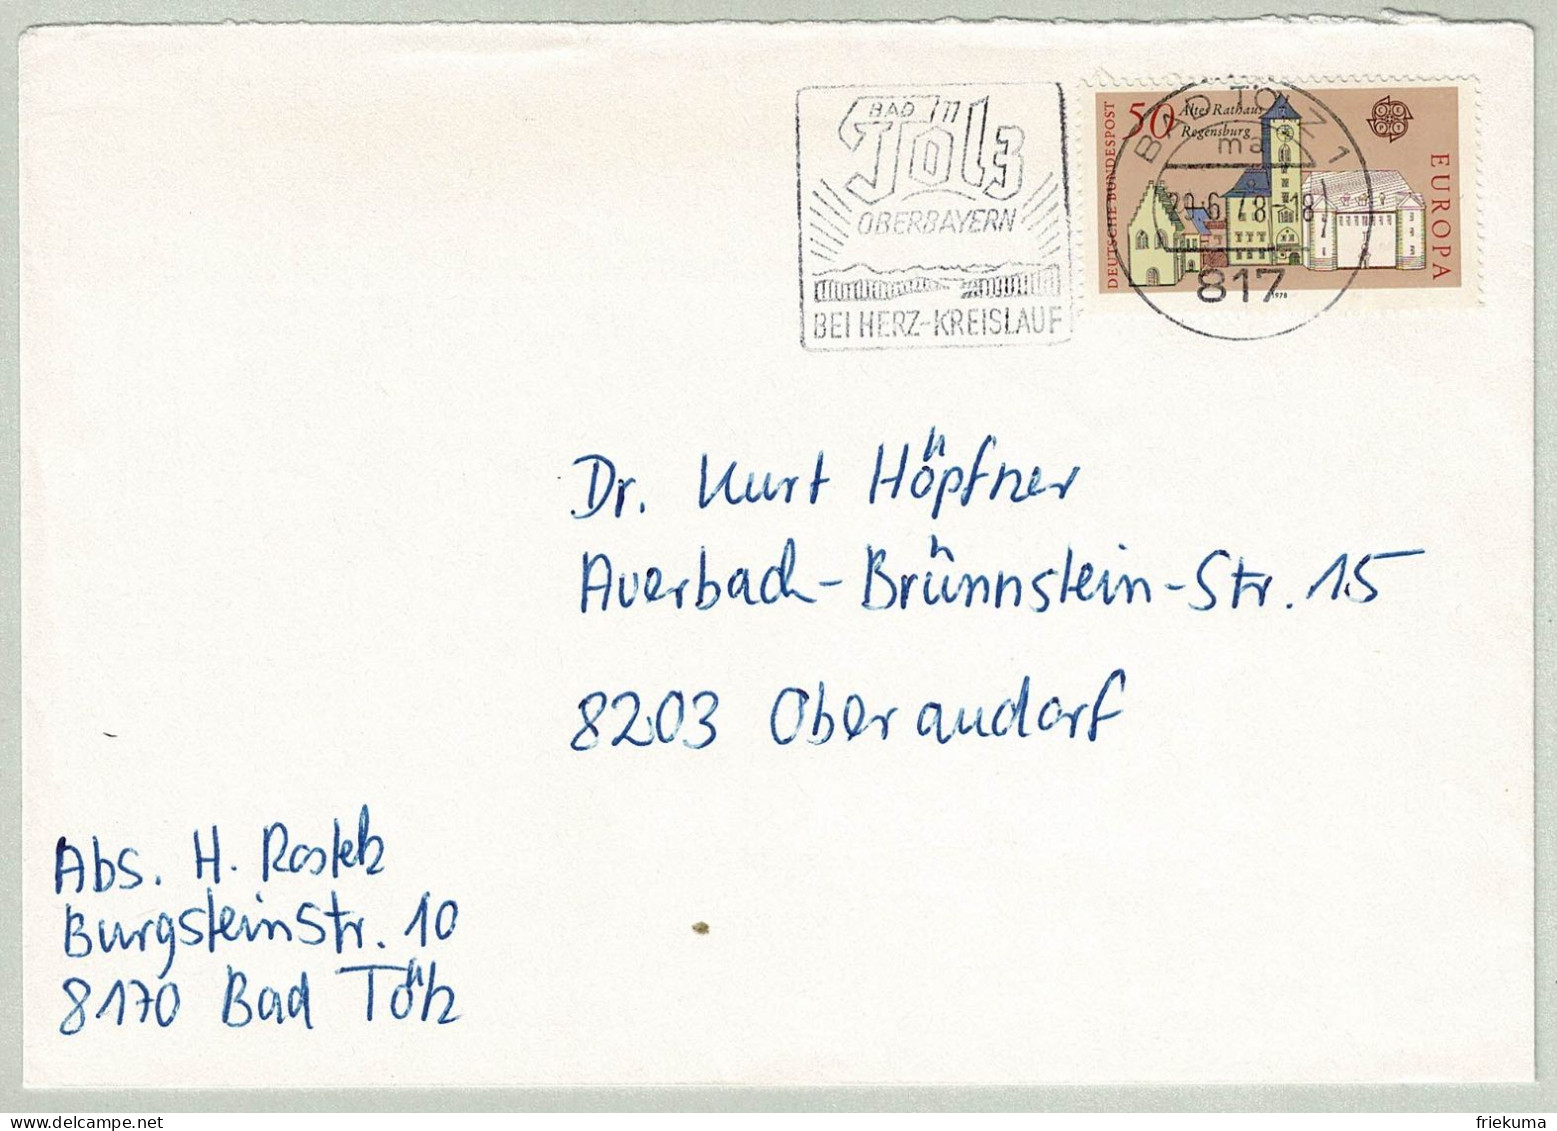 BAD in
Tölz
OBERBAYERN
BEI HERZ-KREISLAUF
BAD TÖLZ 1
ma
29.-6.78-18
817
DEUTSCHE BUNDESPOST
50 Altes Rathaus
Regensburg
EUROPA
1978
Dr. Kurt Höpfner
Auerbach-Brünnstein-Str. 15
8203 Oberaudorf
Abs. H. Rostek
Burgsteinstr. 10
8170 Bad Tölz
friekuma